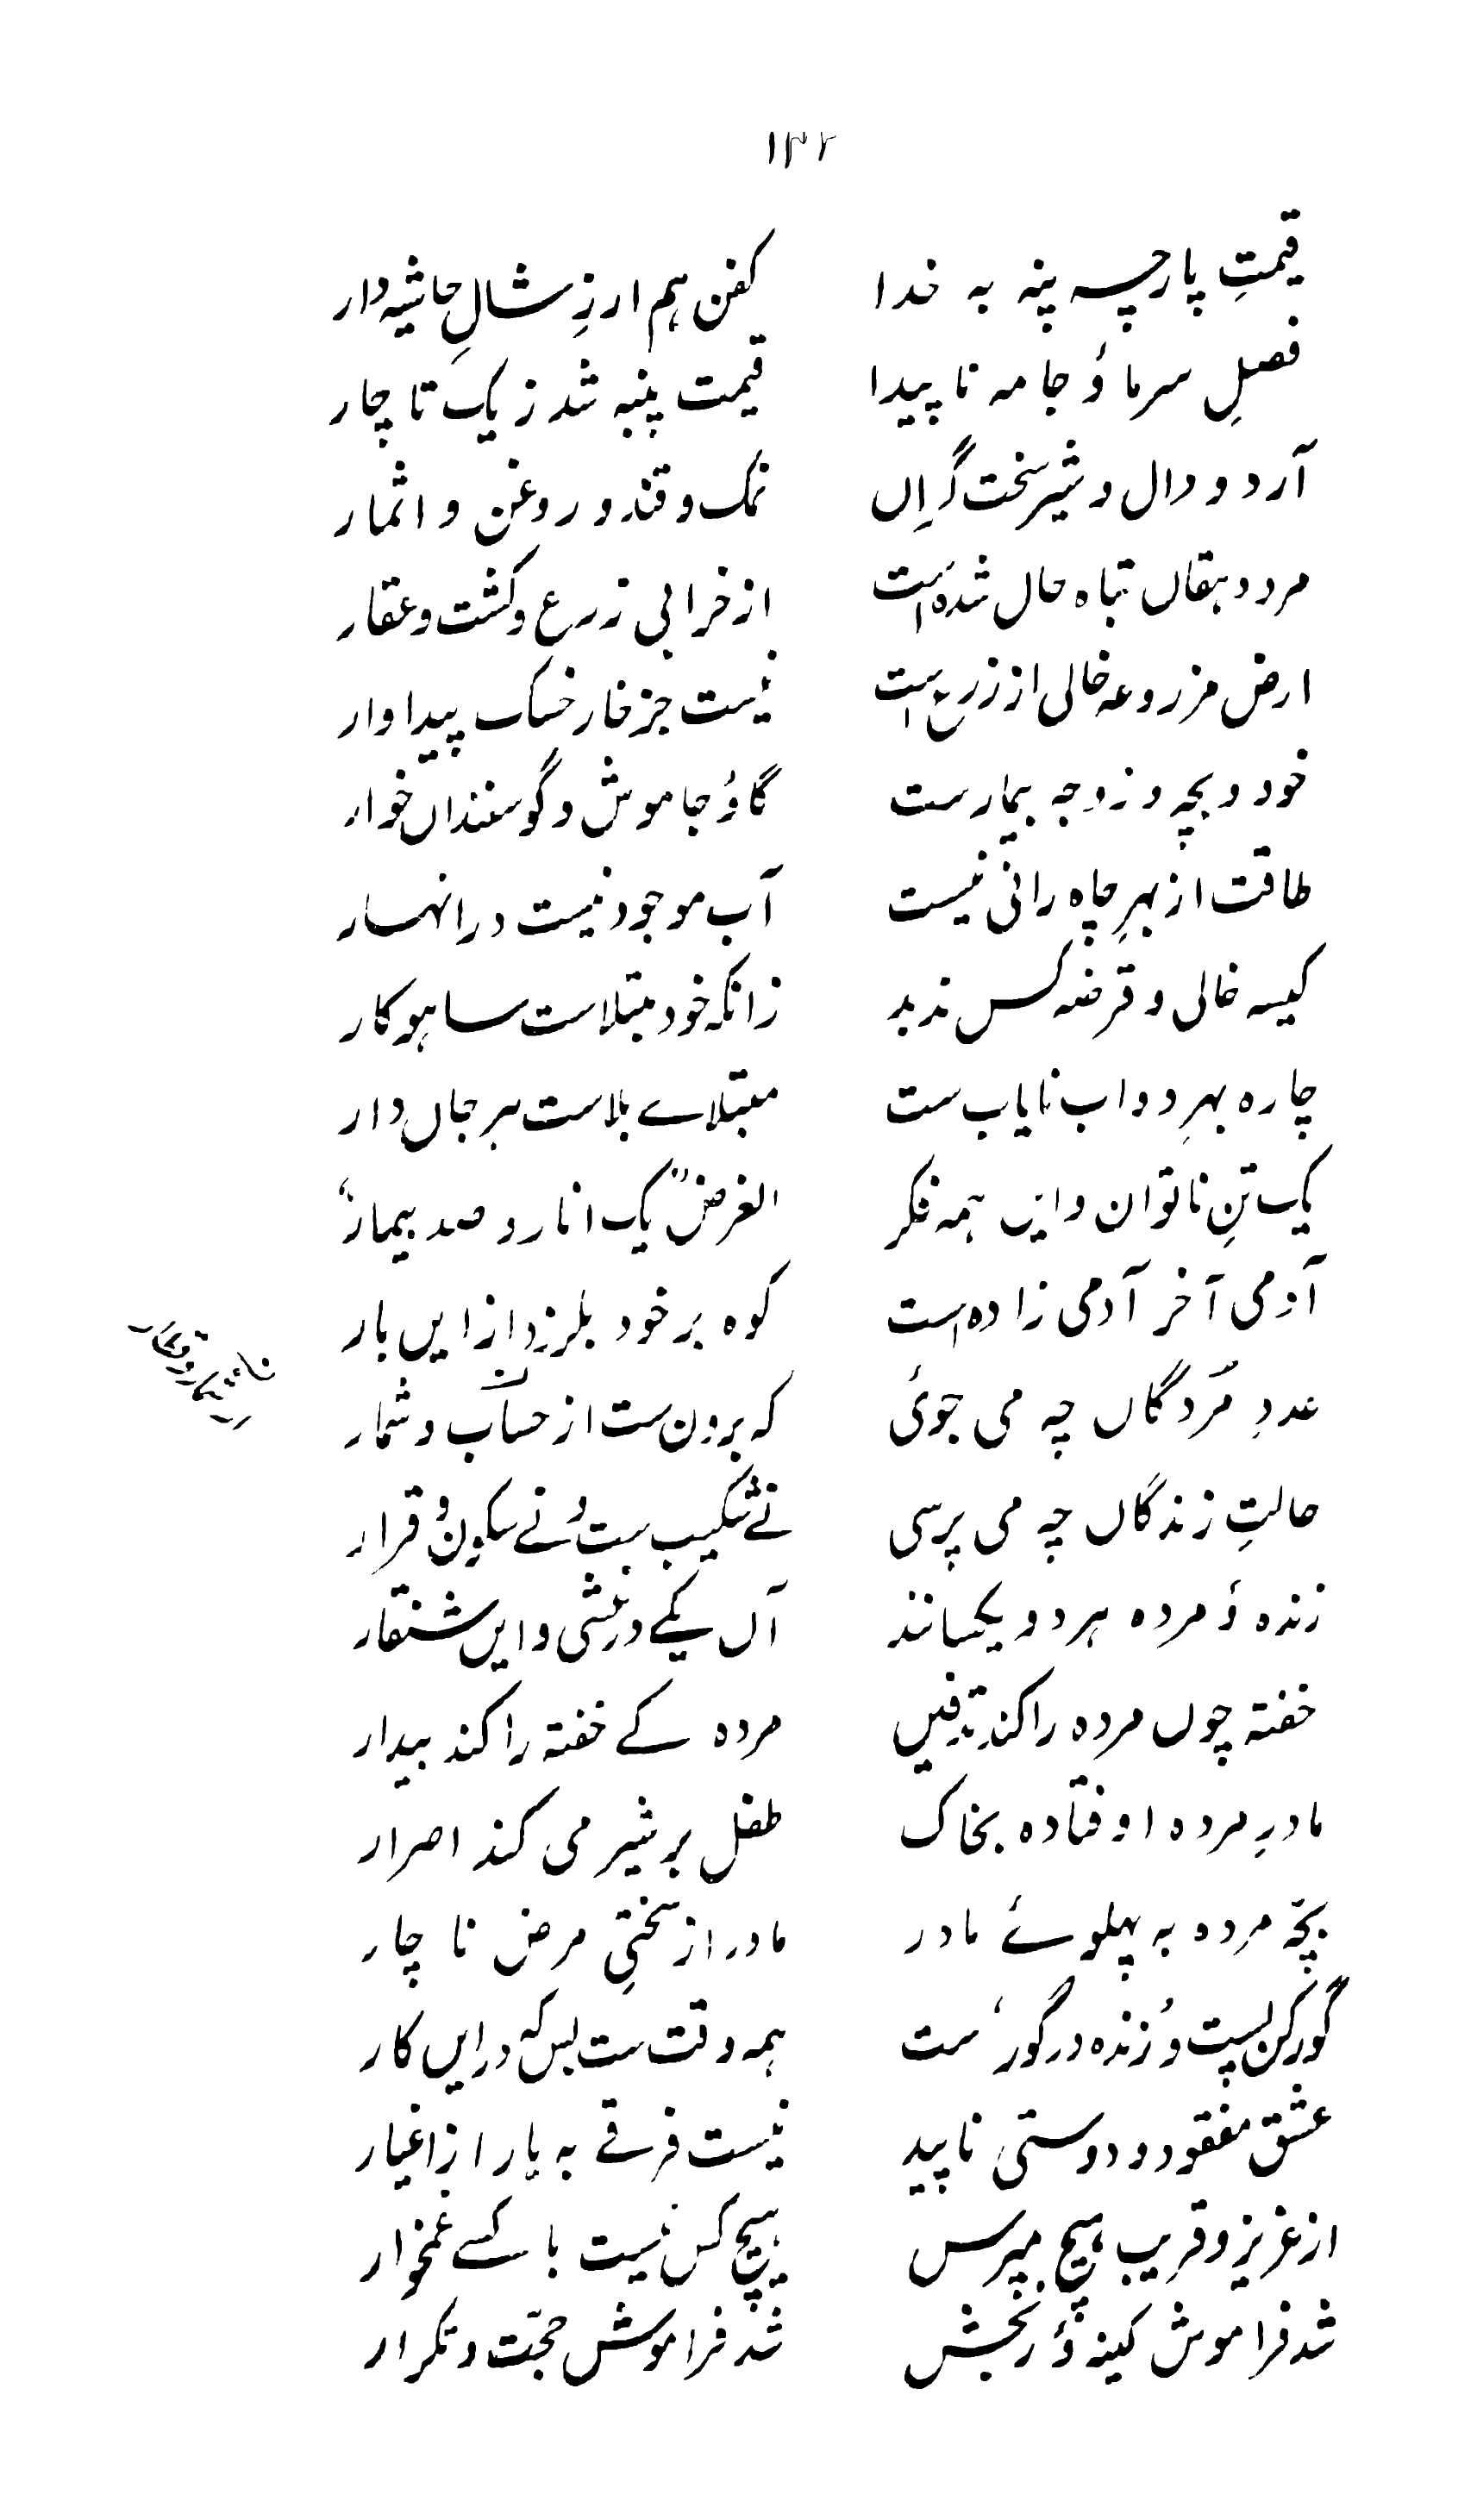 ۱۳۲
قیمتِ پارچہ پنہ بہ خدا
کفن ہم ارزِ شال حاشیہ دار
فصلِ سرما وُ جامہ ناپیدا
قیمت پنبہ شد ز یک تا چار
آرد و دال و شیر سخت گراں
نمک و قند و روغن و اثمار
مرد دہقاں تباہ حال شدہ است
از خرابی زرع و کشت و عقار
ارض مزروعہ خالی از زرع است
نیست جز خار خسک پیداوار
خود و بچہ و زوجہ بیمارست
گاؤ جاموش و گوسفنداں خوار
طاقت از بہرِ چاہ رانی نیست
آب موجود نیست در انہار
کیسہ خالی و قرضہ کس ندہد
زانکہ خود مبتلاست ساہوکار
چارہ بہرِ دواب نایاب ست
مبتلاے بلاست ہر جاں دار
یک تنِ ناتواں و ایں ہمہ فکر
الغرض "یک انار و صد بیمار"
آدمی آخر آدمی زادہ است
کوہ بر خود بلرزد از ایں بار
عددِ مُردگاں چہ می جوئی
کہ بروں ست از حساب و شمار
حالتِ زندگاں چہ می پرسی
نے شکیب ست وُ نے سکون وُ قرار
زندہ وُ مردہ ہر دو یکسانند
آں یکے در غشی و ایں
خفتہ چوں مردہ را کند تدفیں
مردہ کے خفتہ را کند بیدار
مادرِ مردہ اوفتادہ بخاک
طفل بر شیر می کند اصرار
بچّہ مردہ بہ پہلوئے مادر
مادر از سختیِ مرض ناچار
گورکن پست وُ زندہ در گور ست
ہمہ وقت ست بس کہ در ایں کار
عشق مفقود و دوستی ناپید
نیست فرقے بہ یار از اغیار
از عزیز و قریب ہیچ مپرس
ہیچ کس نیست با کسے غمخوار
شد فراموش کینہ وُ رنجش
شد فراموش حجّت و تکرار